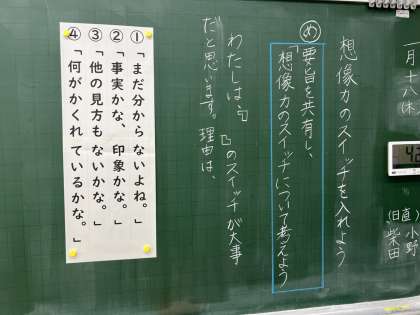 一月十八(木)
日直
小野
柴田
想像力のスイッチを入れよう
め
要旨を共有し、
「想像力のスイッチについて考えよう
わたしは、『　』のスイッチが大事
だと思います。理由は、
①「まだ分からないよね。」
②「事実かな、印象かな。」
③「他の見方もないかな。」
④「何がかくれているかな。」